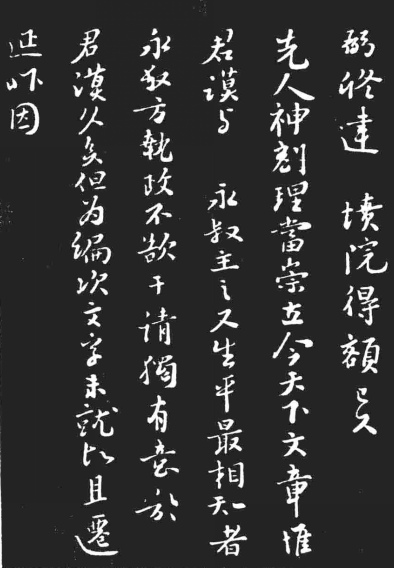 弼修建 墳院得額已久
先人神刻理當崇立今天下文章惟
君謨与 永叔主之又生平最相知者
永叔方執政不欲干請獨有意於
君謨久矣但为編次文字未就以且遷
延昨因